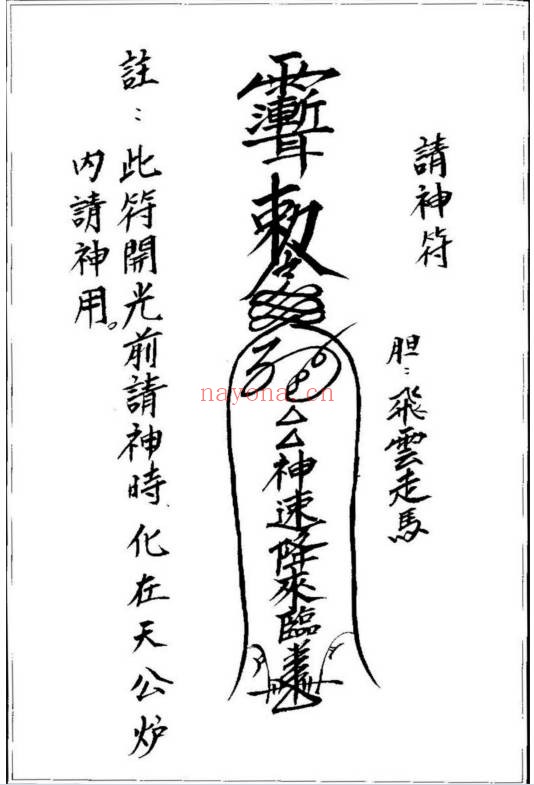 請神符
胆：飛雲走馬
勅令
△△神速降來臨
註：此符開光前請神時化在天公炉
内請神用。
nayona.cn